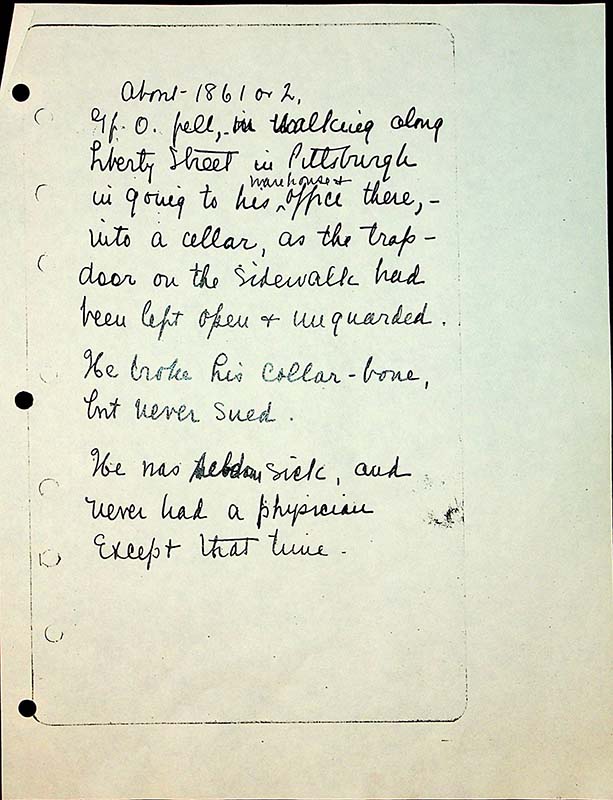 About - 1861 or 2,
Gf. O. fell, in walking along
Liberty Street in Pittsburgh
warehouse +
in going to his office there, -
into a cellar, as the trap-
door on the sidewalk had
been left open + unguarded.
He broke his collar-bone,
but never sued.
He was seldom sick, and
never had a physician
Except that time.